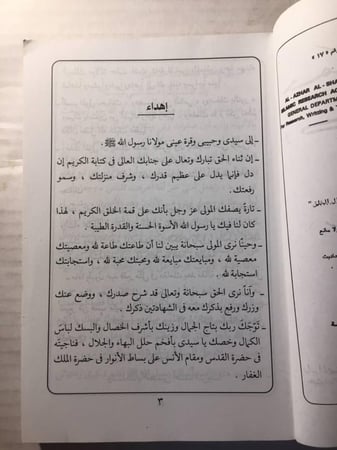 إهداء
ـ إلى سيدى وحبيبى وقرة عينى مولانا رسول الله ﷺ.
ـ إن ثناء الحق تبارك وتعالى على جنابك العالى فى كتابة الكريم إن
دل فإنما يدل على عظيم قدرك ، وشرف منزلتك ، وسمو
رفعتك.
ـ تارةً يصفك المولى عز وجل بأنك على قمة الخلق الكريم ، لهذا
كان لنا فيك يا رسول الله الأسوة الحسنة والقدرة الطيبة .
ـ وحينًا نرى المولى سبحانة يبين لنا أن طاعتك طاعة لله ومعصيتك
معصية لله ، ومبايعتك مبايعة لله ومحبتك محبة لله ، واستجابتك
استجابة لله .
ـ وآنًا نرى الحق سبحانة وتعالى قد شرح صدرك ، ووضع عنك
وزرك ورفع بذكرك معه فى الشهادتين ذكرك .
ـ تَوَّجَكَ ربك بتاج الجمال وزينك بأشرف الخصال والبسك لباسَ
الكمال وخصك يا سيدى بأفخم حلل البهاء والجلال ، فناجيتَه
فى حضرة القدس ومقام الأنس على بساط الأنوار فى حضرة الملك
الغفار .
٣
«١٧»
AL-AZHAR AL-SH
ISLAMIC RESEARCH A
GENERAL DEPARTM
Research, Writing &